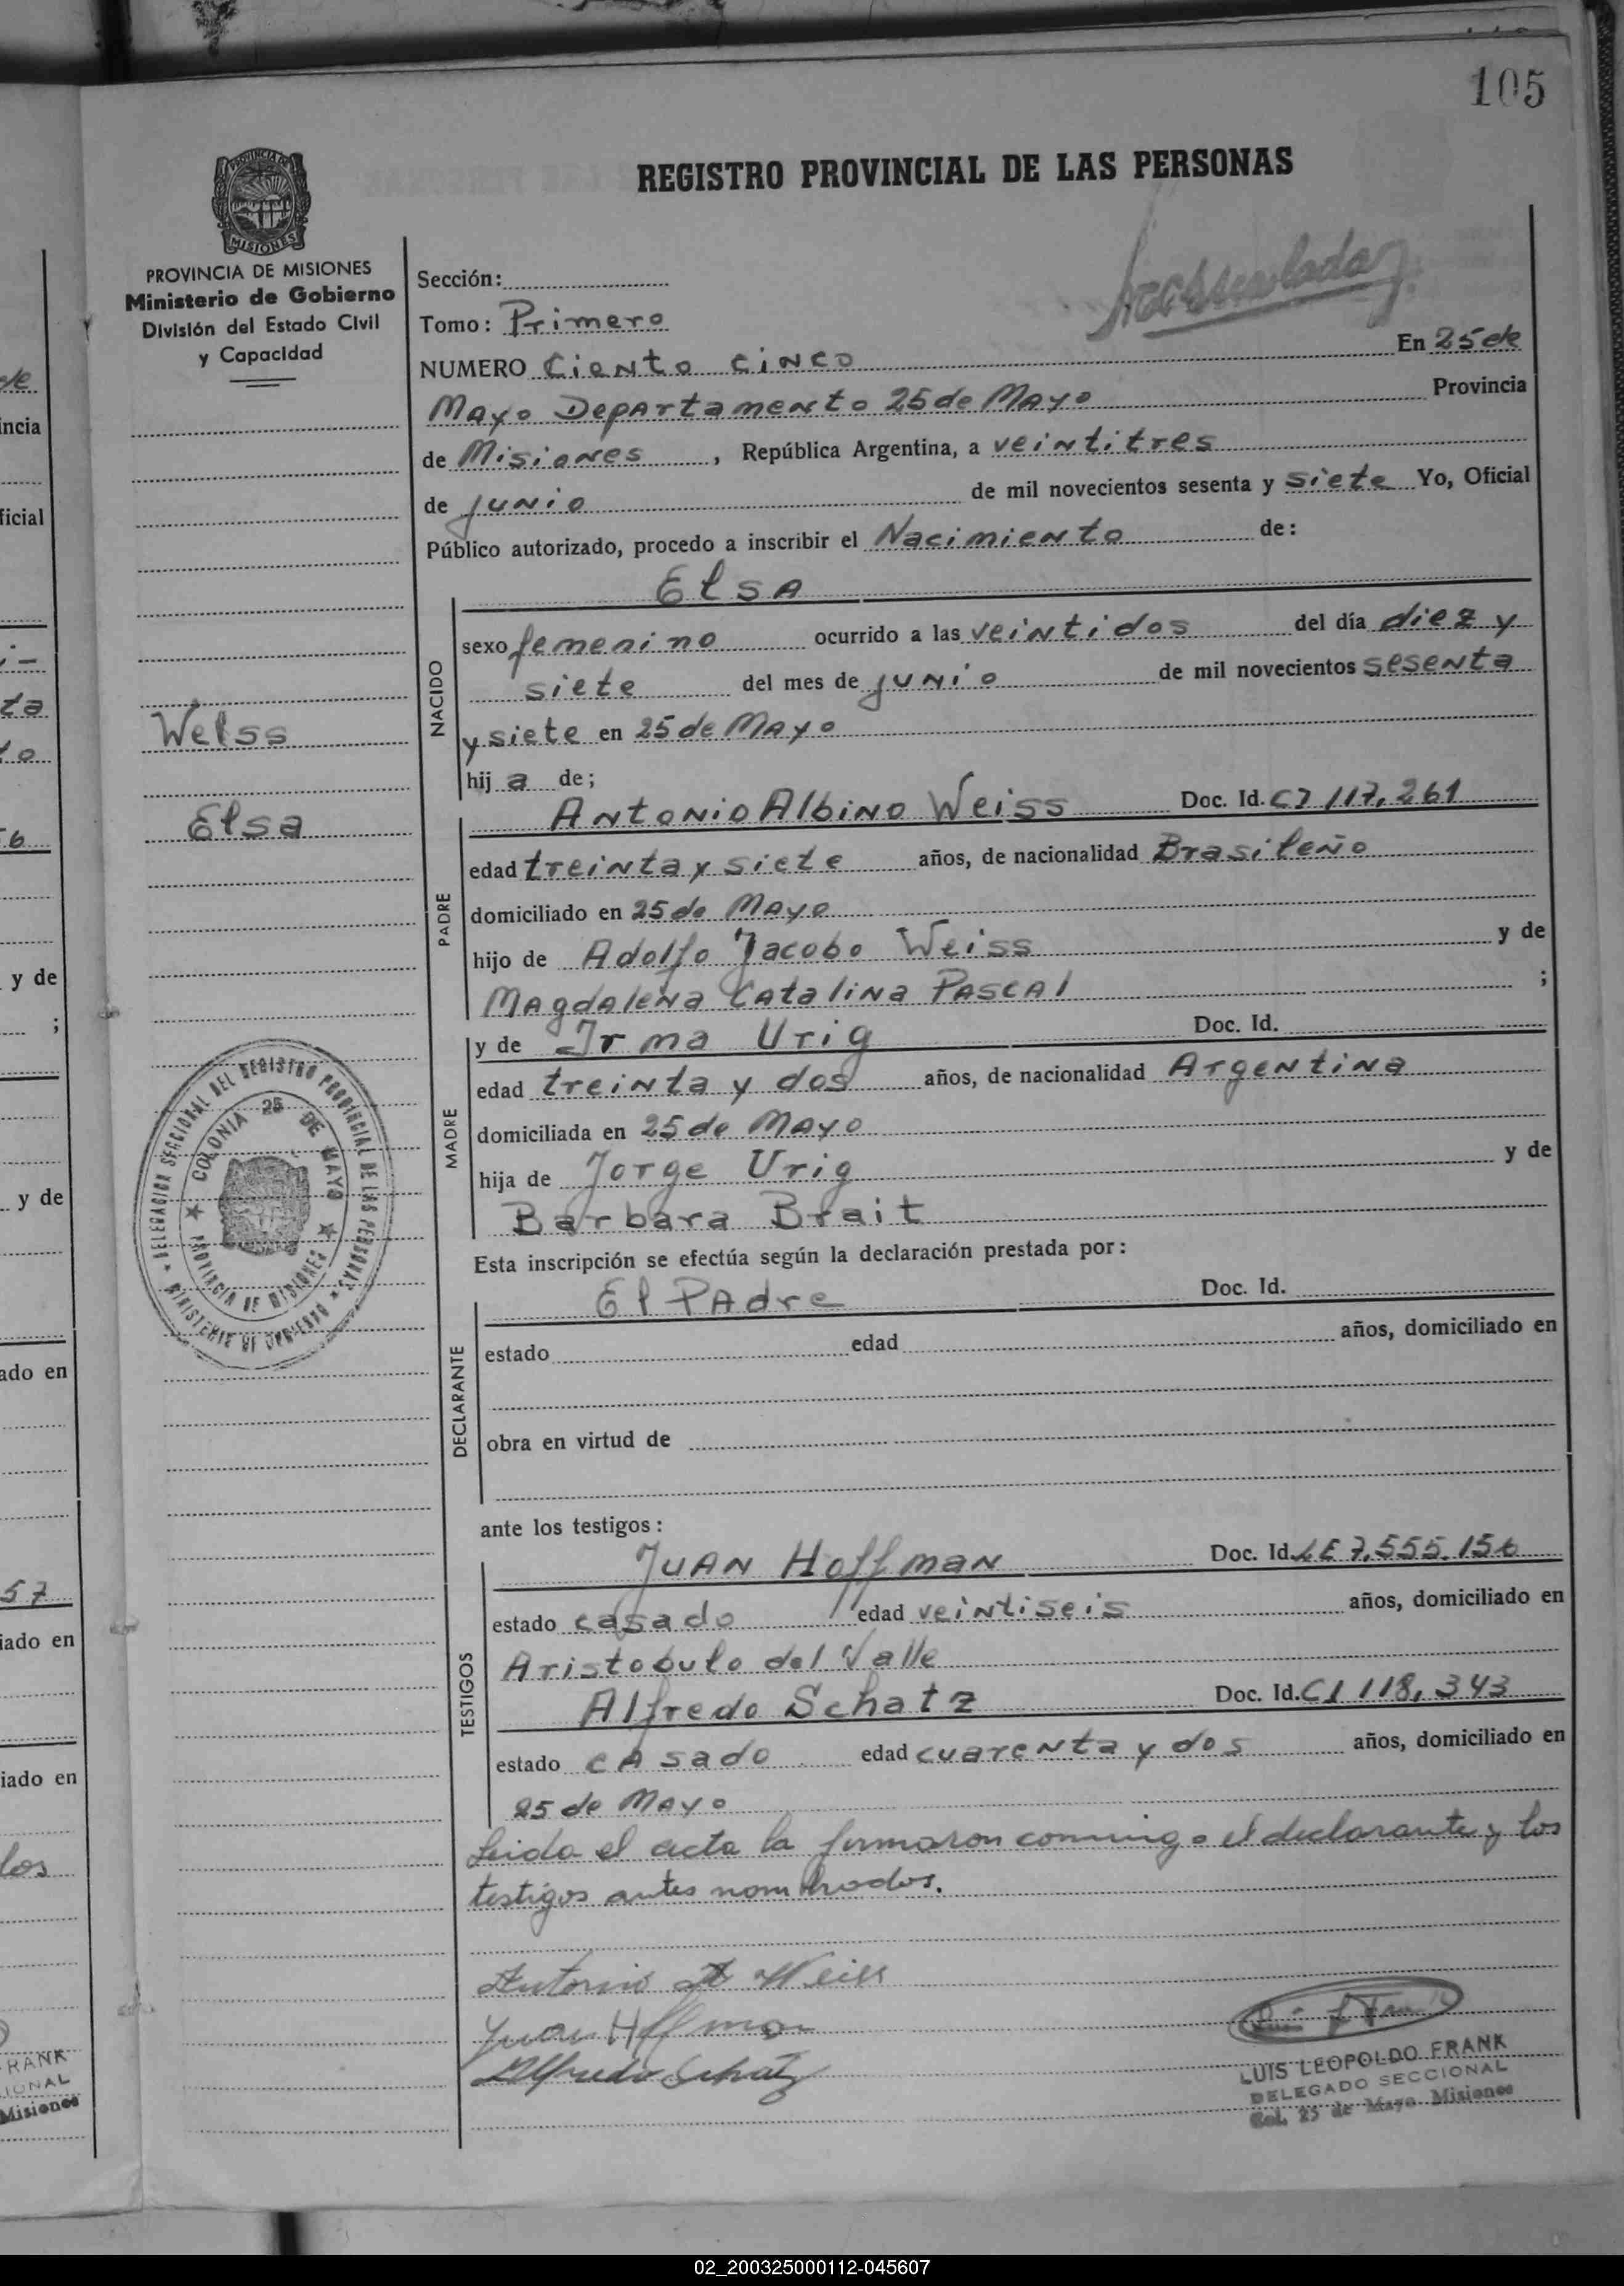 105
REGISTRO PROVINCIAL DE LAS PERSONAS
PROVINCIA DE MISIONES
MISIONES
PROVINCIA DE MISIONES
Ministerio de Gobierno
División del Estado Civil
y Capacidad
Sección:
Tomo: Primero
NUMERO Ciento cinco En 25 de
Mayo Departamento 25 de Mayo Provincia
de Misiones, República Argentina, a veintitres
de junio de mil novecientos sesenta y siete Yo, Oficial
Público autorizado, procedo a inscribir el Nacimiento de:
Elsa
NACIDO
sexo femenino ocurrido a las veintidos del día diez y
siete del mes de junio de mil novecientos sesenta
y siete en 25 de Mayo
hij a de;
Weiss
Elsa
PADRE
Antonio Albino Weiss Doc. Id. CI 117,261
edad treinta y siete años, de nacionalidad Brasileño
domiciliado en 25 de Mayo
hijo de Adolfo Jacobo Weiss y de
Magdalena Catalina Pascal ;
MADRE
y de Irma Urig Doc. Id.
edad treinta y dos años, de nacionalidad Argentina
domiciliada en 25 de Mayo
hija de Jorge Urig y de
Barbara Brait
DELEGACION SECCIONAL DEL REGISTRO PROVINCIAL DE LAS PERSONAS
MINISTERIO DE GOBIERNO
COLONIA 25 DE MAYO
PROVINCIA DE MISIONES
Esta inscripción se efectúa según la declaración prestada por:
DECLARANTE
El Padre Doc. Id.
estado edad años, domiciliado en
obra en virtud de
ante los testigos:
TESTIGOS
Juan Hoffman Doc. Id. LE 7,555,156
estado casado edad veintiseis años, domiciliado en
Aristobulo del Valle
Alfredo Schatz Doc. Id. CI 118,343
estado casado edad cuarenta y dos años, domiciliado en
25 de Mayo
Leida el acta la firmaron conmigo el declarante y los
testigos antes nombrados.
Antonio A Weiss
Juan Hffman
Alfredo Schatz
LUIS LEOPOLDO FRANK
DELEGADO SECCIONAL
Col. 25 de Mayo Misiones
de
incia
ficial
y de
;
y de
ado en
57
iado en
iado en
los
FRANK
IONAL
Misiones
02_200325000112-045607